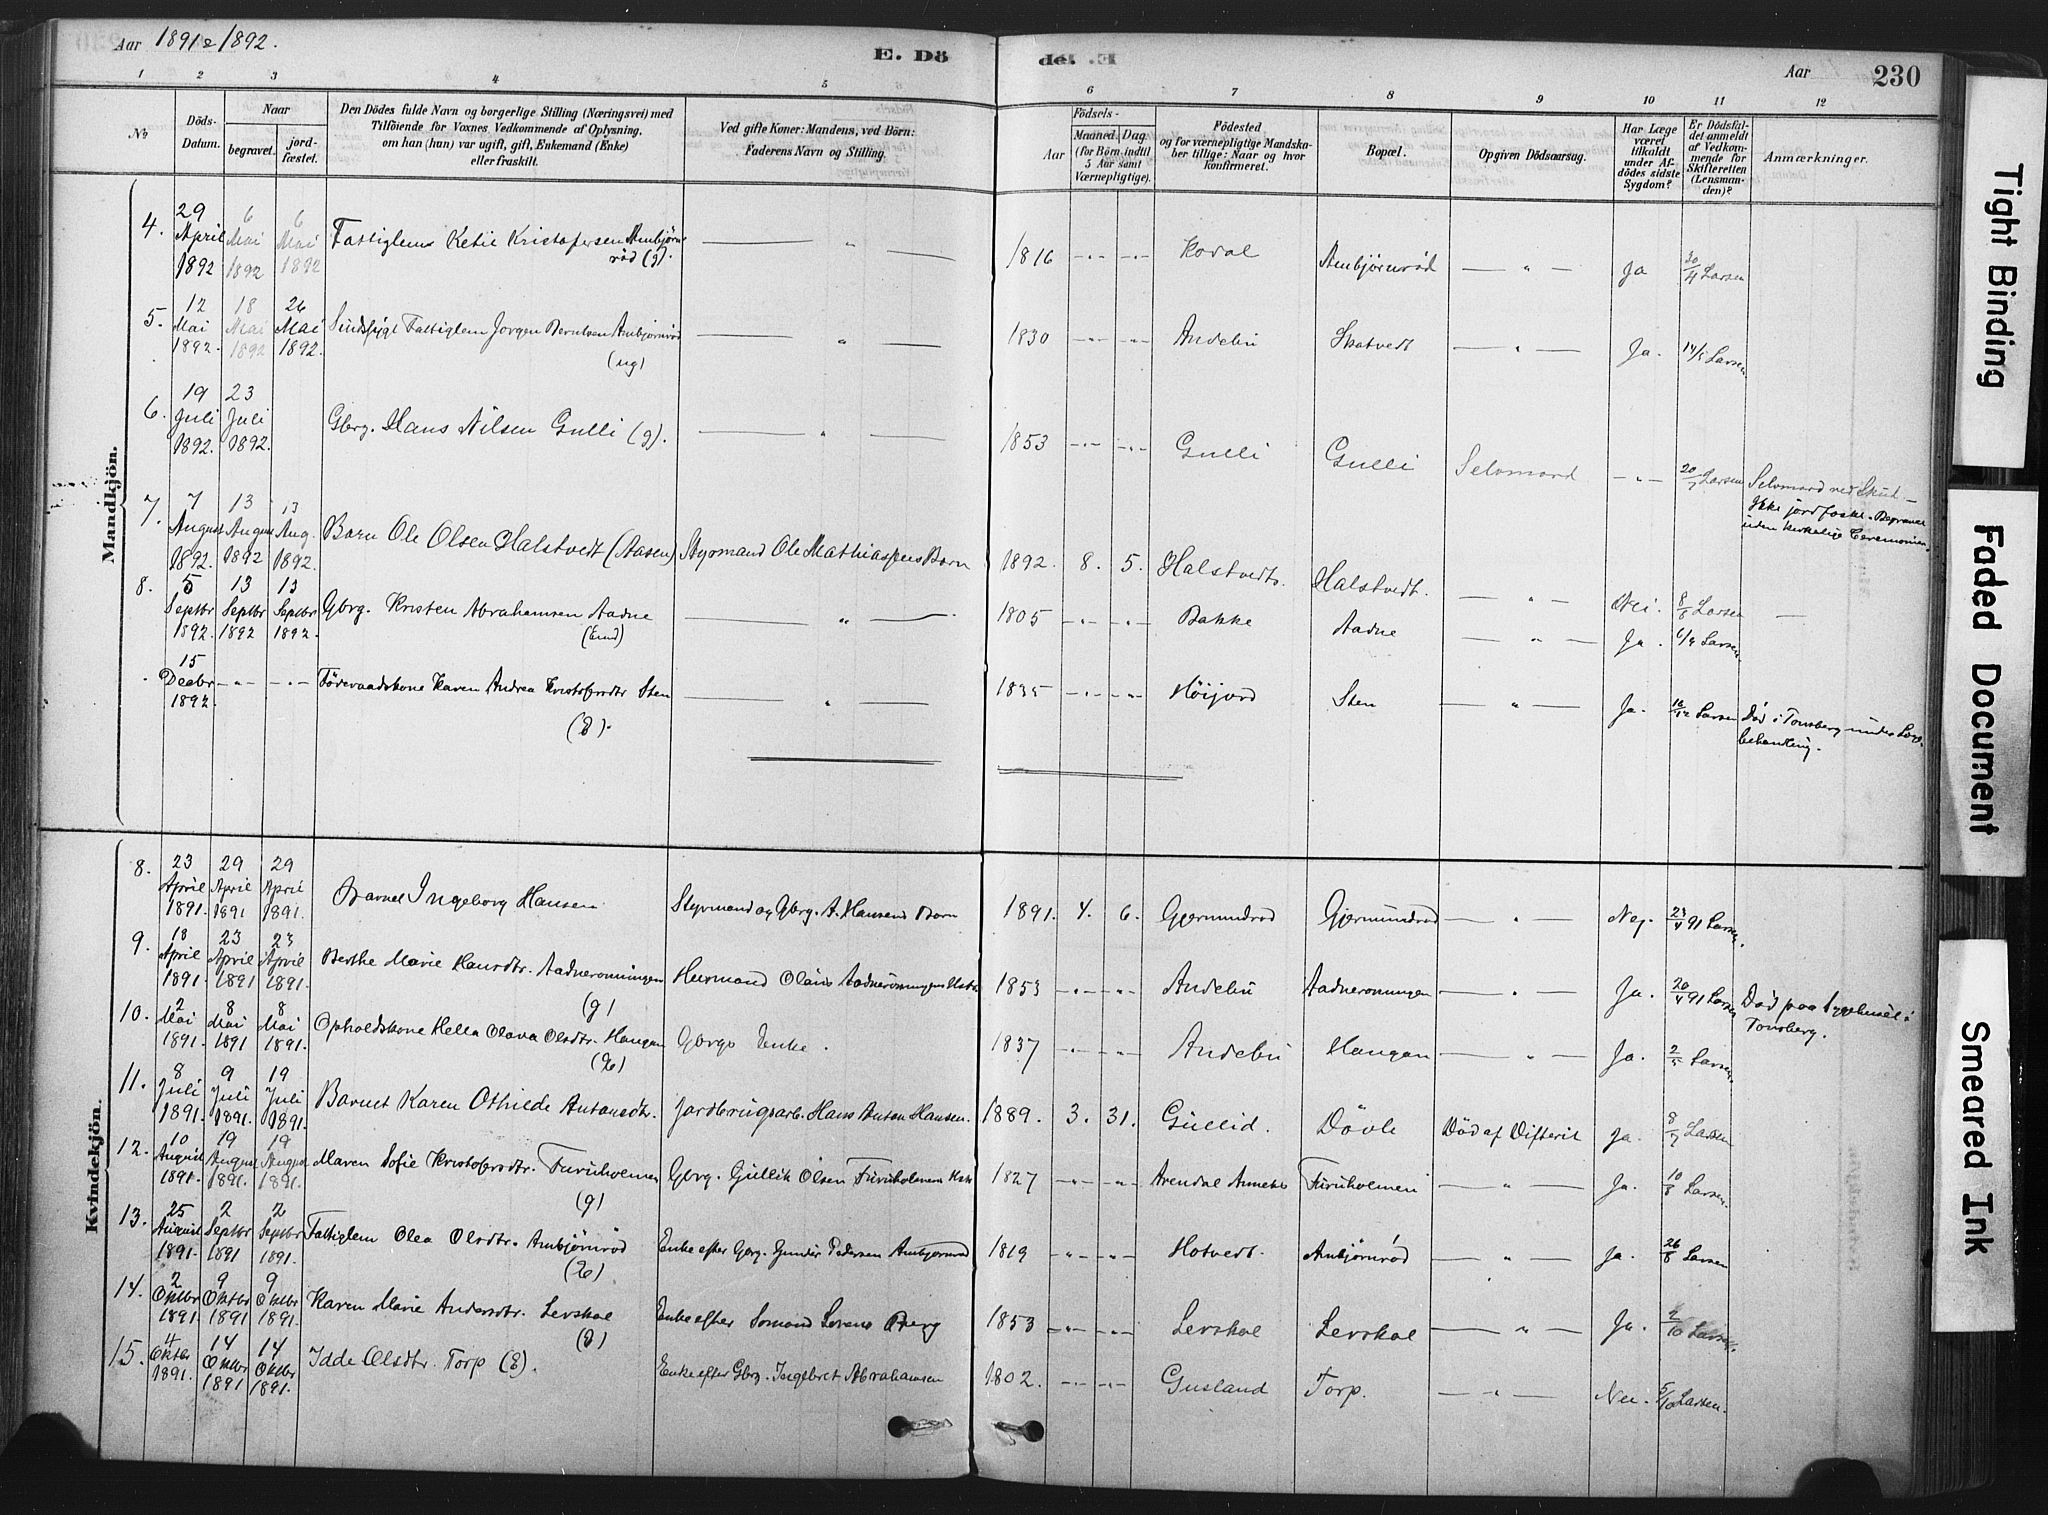 Aar 1891 & 1892.
E. Dö
de. E
Aar
230
1 2 3 4 5 6 7 8 9 10 11 12
No
Döds-Datum.
Naar
begravet.
jord-fæstet.
Den Dödes fulde Navn og borgerlige Stilling (Næringsvei) med
Tilföiende for Voxnes Vedkommende af Oplysning,
om han (hun) var ugift, gift, Enkemand (Enke)
eller fraskilt.
Ved gifte Koner: Mandens, ved Börn:
Faderens Navn og Stilling.
Födsels-
Aar
Maaned. Dag.
(for Börn indtil
5 Aar samt
Værnepligtige).
Födested
og for værnepligtige Mandska-
ber tillige: Naar og hvor
konfirmeret.
Bopæl.
Opgiven Dödsaarsag.
Har Læge
været
tilkaldt
under Af-
dödes sidste
Sygdom?
Er Dödsfal-
det anmeldt
af Vedkom-
mende for
Skifteretten
(Lensman-
den)?
Anmærkninger.
Mandkjön.
4. 29 April 1892 6 Mai 1892 6 Mai 1892 Fattiglem Ketil Kristofersen Ambjørnrød (g). — " — 1816 -"- -"- Kodal Ambjørnrød — " — Ja 30/4 Larsen
5. 12 Mai 1892. 18 Mai 1892 26 Mai 1892. Sindssygt Fattiglem Jørgen Berntsen Ambjørnrød (ug) — " — 1830 -"- -"- Andebu Skatvedt — " — Ja. 14/5 Larsen
6. 19 Juli 1892. 23 Juli 1892. Gbrg. Hans Nilsen Gulli (g). — " — 1853 -"- -"- Gulli Gulli Selvmord -"- 20/7 Larsen Selvmord ved Skud. Ikke jordfæstet. Begravet uden kirkelige Ceremonier.
7. 7 August 1892. 13 August 1892 13 Aug. 1892. Barn Ole Olsen Halstvedt (Aasen) Styrmand Ole Mathiassens Barn 1892. 8. 5. Halstvedt. Halstvedt. — " — Nei. 8/8 Larsen —
8. 5 Septbr 1892. 13 Septbr 1892 13 Septbr 1892. Gbrg. Kristen Abrahamsen Aadne (Emd) — " — 1805 -"- -"- Bakke Aadne — " — Ja. 6/9 Larsen.
15 Decbr 1892. -"- -"- Föderaadskone Karen Andrea Kristofersdtr Sten (E). — " — 1835 -"- -"- Höijord Sten — " — Ja. 16/12 Larsen Död i Tönsberg under Læge-behandling.
Kvindekjön.
8. 23 April 1891. 29 April 1891 29 April 1891. Barnet Ingeborg Hansen Styrmand og Gbrg. A. Hansens Barn 1891. 4. 6. Gjermundrød Gjermundrød — " — Nej. 23/4 91 Larsen.
9. 18 April 1891. 23 April 1891 23 April 1891. Berthe Marie Hansdtr. Aadnerønningen (g) Husmand Olaus Aadnerønningens Hustr 1853 -"- -"- Andebu Aadnerønningen — " — Ja. 20/4 91 Larsen Død paa Sygehuset i Tönsberg.
10. 2 Mai 1891. 8 Mai 1891 8 Mai 1891. Opholdskone Helle Olava Olsdtr. Haugan (E) Gbrgs Enke. 1837 -"- -"- Andebu Haugan — " — Ja. 2/5 Larsen.
11. 8 Juli 1891. 9 Juli 1891. 19 Juli 1891. Barnet Karen Othilde Antonsdtr. Jordbrugsarb. Hans Anton Hansen. 1889. 3. 31. Gullid. Døvle Död af Difterit Ja. 8/7 Larsen
12. 10 August 1891. 19 August 1891. 19 August 1891. Maren Sofie Kristofersdtr. Furuholmen (g) Gbrg. Gullik Olsen Furuholmens Kone 1827 -"- -"- Arendal Anneks Furuholmen — " — Ja. 10/8 Larsen.
13. 25 August 1891. 2 Septbr 1891 2 Septbr 1891. Fattiglem Olea Olsdtr. Ambjörnröd (E) Enke efter Gbrg. Gunder Pedersen Ambjørnrød 1819 -"- -"- Hotvedt. Ambjörnröd — " — Ja. 26/8 Larsen
14. 2 Oktbr 1891. 9 Oktbr 1891 9 Oktbr 1891. Karen Marie Andersdtr. Levskal (E) Enke efter Sømand Lorens Berg 1853 -"- -"- Levskal Levskal — " — Ja. 2/10 Larsen.
15. 4 Oktbr 1891. 14 Oktbr 1891 14 Oktbr 1891. Idde Olsdtr. Torp (E). Enke efter Gbrg. Ingebret Abrahamsen 1802. -"- -"- Gusland Torp. — " — Nei. 5/10 Larsen.
Tight Binding
Faded Document
Smeared Ink